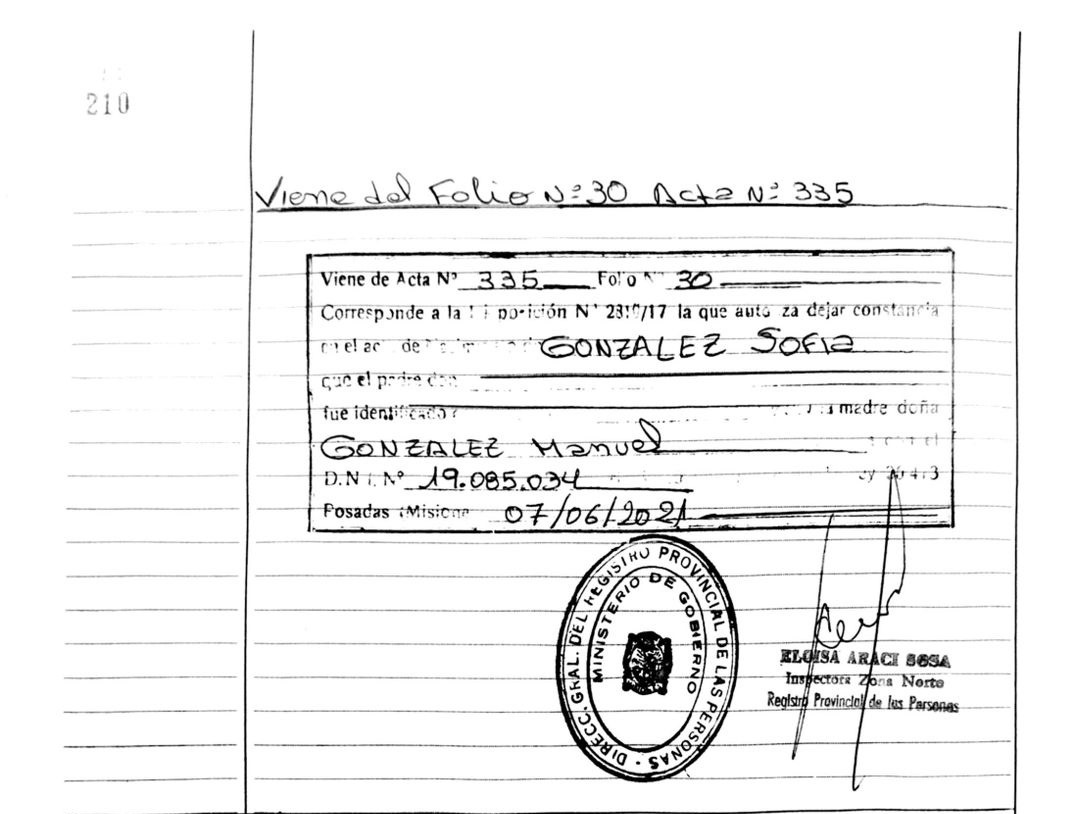 210
Viene del Folio Nº 30 Acta Nº 335
Viene de Acta Nº 335 Folio Nº 30
Corresponde a la posición Nº 2310/17 la que auto za dejar constancia
en el ac de GONZALEZ Sofia
que el padre don
fue identificado madre doña
GONZALEZ Manuel el
D.N.I. Nº 19.085.034
Posadas (Misione 07/06/2021
DIRECC. GRAL. DEL REGISTRO PROVINCIAL DE LAS PERSONAS
MINISTERIO DE GOBIERNO
ELOISA ARACI SOSA
Inspectora Zona Norte
Registro Provincial de las Personas